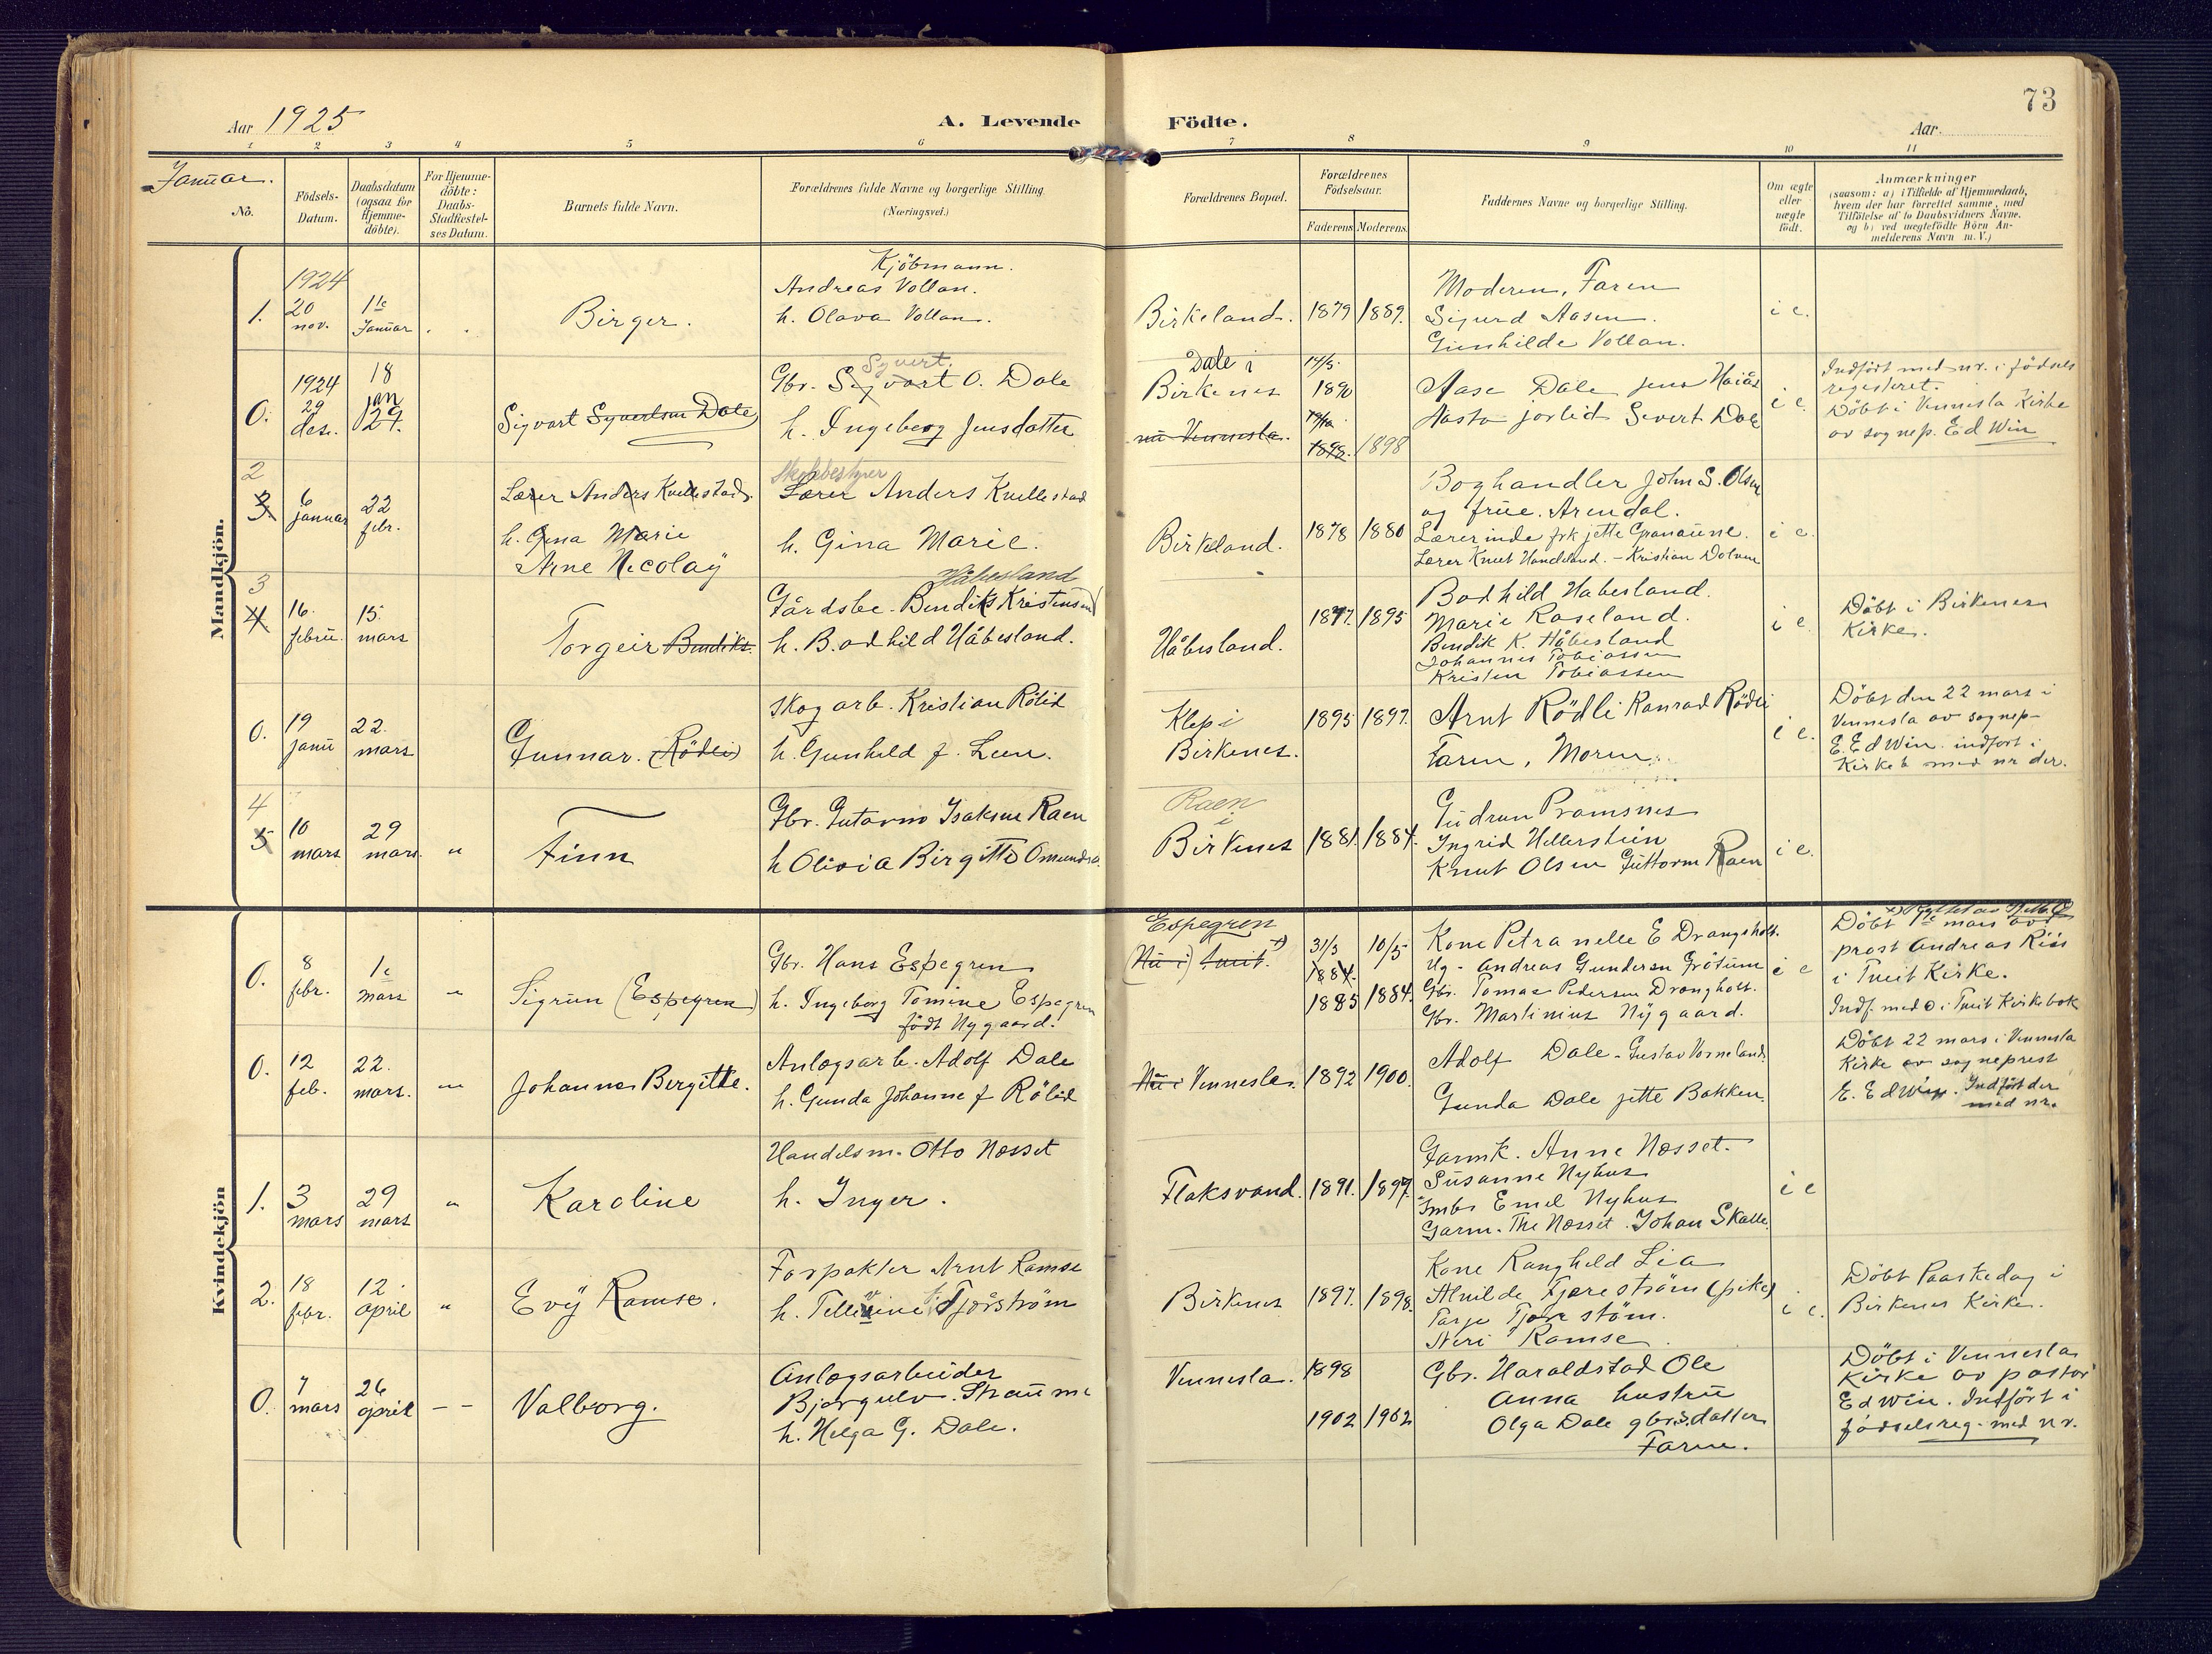 73
Aar 1925
A. Levende Födte.
Aar
1 2 3 4 5 6 7 8 9 10 11
Januar.
No.
Födsels-
Datum.
Daabsdatum
(ogsaa for
Hjemme-
döbte).
For Hjemme-
döbte:
Daabs-
Stadfæstel-
ses Datum.
Barnets fulde Navn.
Forældrenes fulde Navne og borgerlige Stilling
(Næringsvei.)
Forældrenes Bopæl.
Forældrenes
Födselsaar.
Faderens Moderens.
Faddernes Navne og borgerlige Stilling.
Om ægte
eller
uægte
födt.
Anmærkninger
(saasom: a) i Tilfælde af Hjemmedaab,
hvem der har forrettet samme, med
Tilföielse af to Daabsvidners Navne,
og b) ved uægtefödte Börn An-
melderens Navn m. V.)
Mandkjön.
1.
1924
20
nov.
1ste
Januar
Birger.
Kjöbmann.
Andreas Vollan.
h. Olava Vollan.
Birkeland.
1879 1889.
Moderen, Faren
Sigurd Aasen.
Gunhilde Vollan.
i e.
0.
1924
29
des.
18
jan
Sigvart Syvertsen Dale
Syvert.
Gbr. Sigvart O. Dale
h. Ingeberg Jensdatter
Dale i
Birkenes
nu Vennesla.
14/5.
1890
1898. 1898
Aase Dale Jens Haiås
Aasta Jorlid Severt Dale
i e.
Indfört med nr. i födsels
registeret.
Döbt i Vennesla Kirke
av sognep. Ed Win
2
3.
6
januar
22
febr.
Lærer Anders Kvellestad.
h. Gina Marie
Arne Nicolaÿ
Skolebestyrer
Lærer Anders Kvellestad
h. Gina Marie.
Birkeland.
1878 1880
Boghandler John S. Olsen
og frue. Arendal.
Lærerinde frk jette Granaune.
Lærer Knut Handeland. - Kristian Dolven
i e.
3
4.
16.
febru.
15.
mars
Torgeir Bendiks.
Håbesland
Gårdbr. Bendiks Kristensen
h. Bodhild Håbesland.
Håbesland.
1897. 1895
Bodhild Håbesland.
Marie Roseland.
Bendik K. Håbesland
Johannes Tobiassen
Kristen Tobiassen
i e.
Döbt i Birkenes
Kirke.
0.
19
janu
22.
mars
Gunnar. (Rödli)
Skogarb. Kristian Rölid
h. Gunhild f. Leen.
Klep i
Birkenes.
1895 1897.
Arnt Rödli Konrad Rödli
Faren, Moren.
i e.
Döbt den 22 mars i
Vennesla av sognep-
E. Ed Win. indfört i
Kirkeb med nr der.
4
5
10
mars
29
mars.
"
Finn
Gbr. Gutarm Isaksen Raen
h Olivia Birgitte Omunds.
Raen
i
Birkenes
1881. 1884.
Gudrun Pramsnes
Ingrid Hellerstein
Knut Olsen Guttorm Raen
i e.
Kvindekjön
0.
8
febr.
1e
mars
"
Sigrun (Espegren)
Gbr. Hans Espegren
h. Ingeborg Tomine Espegren
födt Nygaard.
Espegren
(Nu i) Tveit.
31/3
1884.
1885
10/5
1884.
Kone Petranelle E Drangsholt.
Ug. Andreas Gundersen Grötum
Gbr. Tomas Pedersen Drangholt.
Gbr. Martinius Nÿgaard.
i e
Döbt 1e mars av
prost Andreas Riis
i Tveit Kirke.
Indf. med 0 i Tveit Kirkebok
0.
12
feb.
22.
mars.
"
Johanne Bergitte.
Anlægsarb. Adolf Dale
h. Gunda Johanne f Rölid
Nu i Vennesla.
1892 1900.
Adolf Dale - Gustav Vorneland
Gunda Dale jette Bakken.
Döbt 22 mars i Vennesla
Kirke av sogneprest
E. Ed Win. Indfört der
med nr.
1.
3
mars
29
mars
"
Karoline
Handelsm. Otto Næsset
h. Inger.
Flaksvand.
1891. 1897.
Garmk. Anne Næsset.
Susanne Nyhus
Smbs Emil Nyhus
Garm. The Næsset. Johan Skalle.
i e
2.
18
febr.
12
april
"
Evÿ Ramse.
Forpakter Arnt Ramse
Birkenes
1897. 1898.
Kone Ranghild Lia
Alvilde Tjoreström (pike)
Tarje Tjore ström.
Neri Ramse.
i e.
Döbt Paaskedag i
Birkenes Kirke.
0.
7
mars
26
april
- -
Valborg.
Anlægsarbeider
Bjorgulv. Straume
h. Helga G. Dale.
Vennesla.
1898
1902 1902
Gbr. Haraldstad Ole
Anna hustru
Olga Dale gbrsdatter
Faren.
Döbt i Vennesla
Kirke av pastor
Ed Win. Indfört i
födselsreg. med nr.